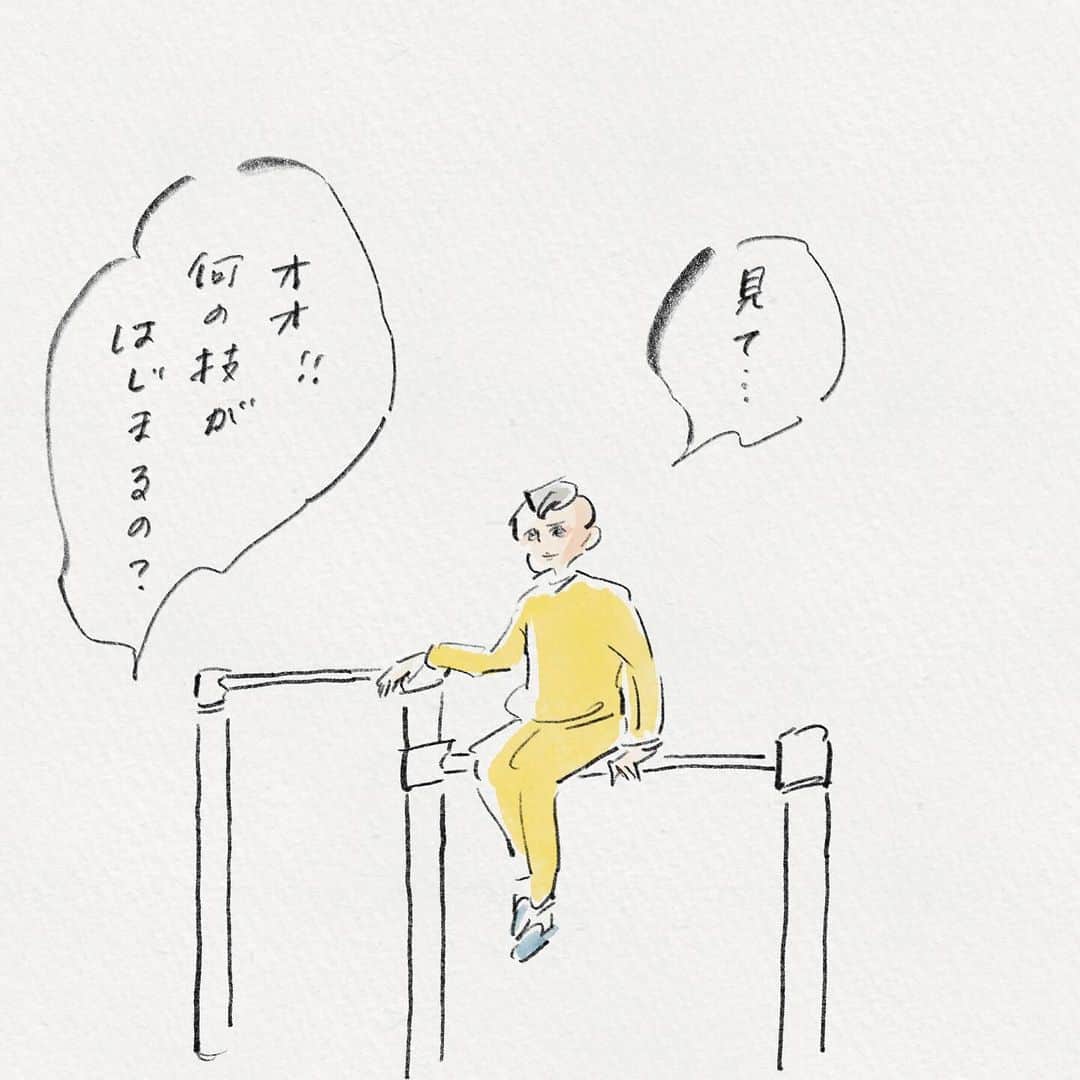 見て…
オオ!!
何の技が
はじまるの?